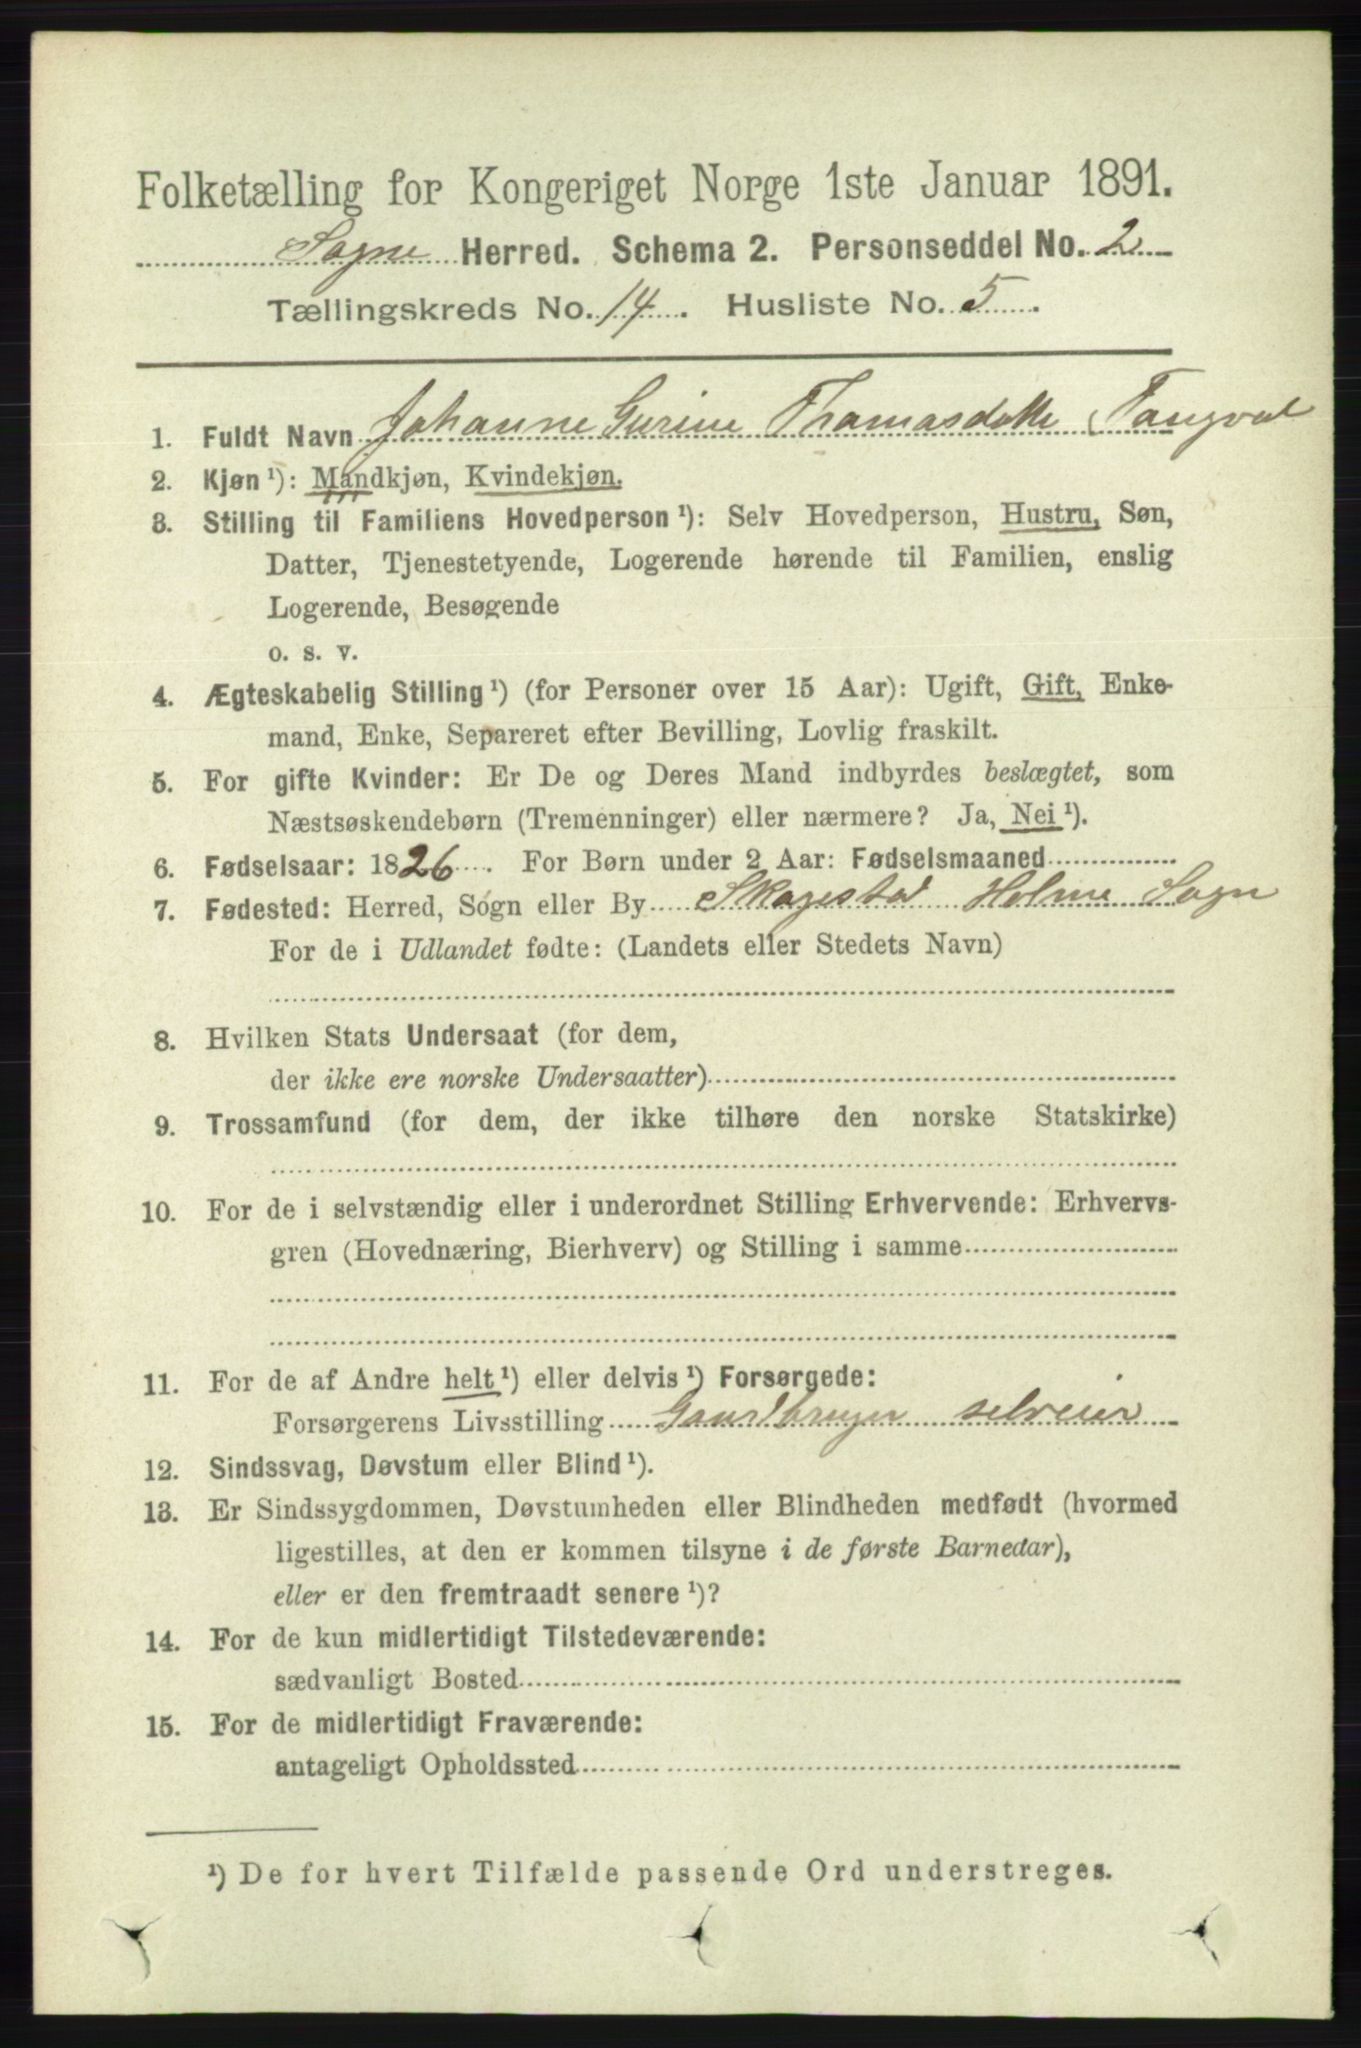 Folketælling for Kongeriget Norge 1ste Januar 1891.
Søgne Herred. Schema 2. Personseddel No. 2
Tællingskreds No. 14. Husliste No. 5.
1. Fuldt Navn Johanne Gurine Thomasdatte Tangval
2. Kjøn ¹): Mandkjøn, Kvindekjøn.
3. Stilling til Familiens Hovedperson ¹): Selv Hovedperson, Hustru, Søn,
Datter, Tjenestetyende, Logerende hørende til Familien, enslig
Logerende, Besøgende
o. s. v.
4. Ægteskabelig Stilling ¹) (for Personer over 15 Aar): Ugift, Gift, Enke-
mand, Enke, Separeret efter Bevilling, Lovlig fraskilt.
5. For gifte Kvinder: Er De og Deres Mand indbyrdes beslægtet, som
Næstsøskendebørn (Tremenninger) eller nærmere? Ja, Nei ¹).
6. Fødselsaar: 1826. For Børn under 2 Aar: Fødselsmaaned
7. Fødested: Herred, Sogn eller By Skagestad Holme Sogn
For de i Udlandet fødte: (Landets eller Stedets Navn)
8. Hvilken Stats Undersaat (for dem,
der ikke ere norske Undersaatter)
9. Trossamfund (for dem, der ikke tilhøre den norske Statskirke)
10. For de i selvstændig eller i underordnet Stilling Erhvervende: Erhvervs-
gren (Hovednæring, Bierhverv) og Stilling i samme
11. For de af Andre helt ¹) eller delvis ¹) Forsørgede:
Forsørgerens Livsstilling Gaardbruger selveier
12. Sindssvag, Døvstum eller Blind ¹).
13. Er Sindssygdommen, Døvstumheden eller Blindheden medfødt (hvormed
ligestilles, at den er kommen tilsyne i de første Barneaar),
eller er den fremtraadt senere ¹)?
14. For de kun midlertidigt Tilstedeværende:
sædvanligt Bosted
15. For de midlertidigt Fraværende:
antageligt Opholdssted
¹) De for hvert Tilfælde passende Ord understreges.